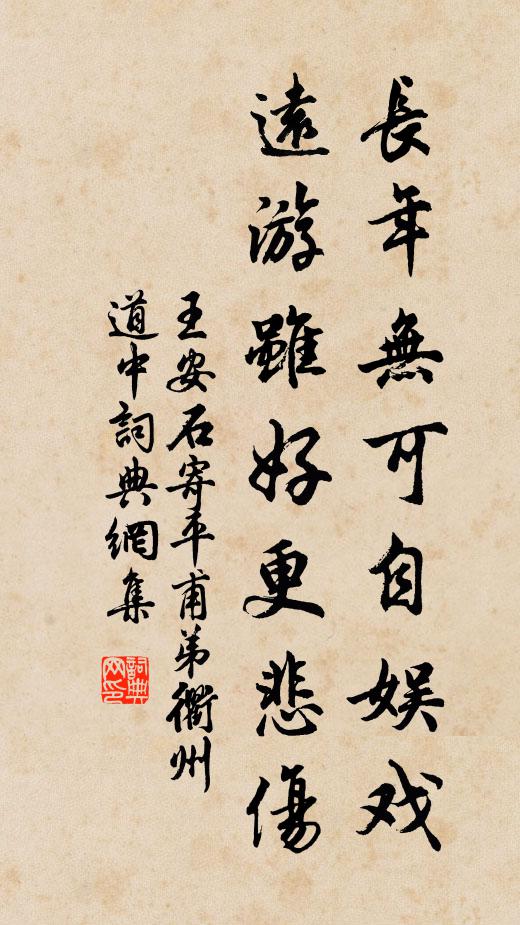 長年無可自娱戏
遠游雖好更悲傷
王安石寄平甫弟衢州
道中詞典網集
詞典网印